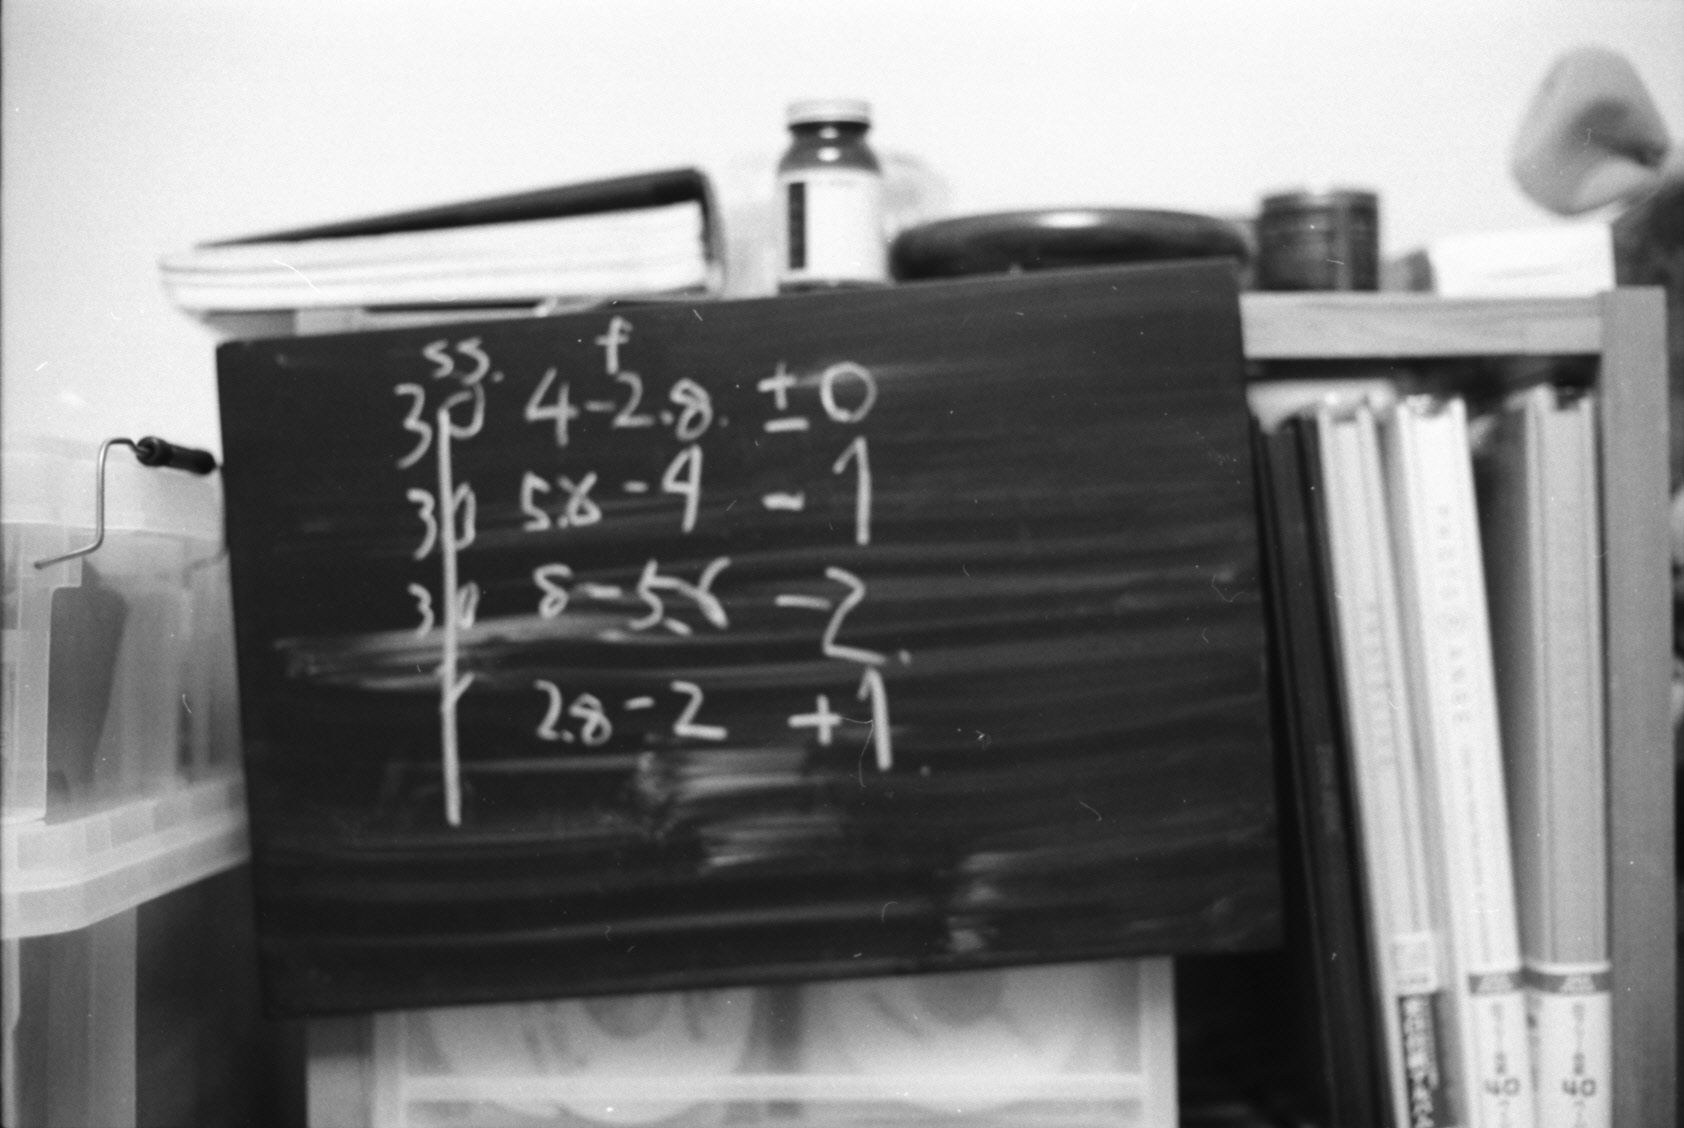 ss. f
30 4-2.8. ±0
30 5.6-4 -1
30 8-5.6 -2.
2.8-2 +1